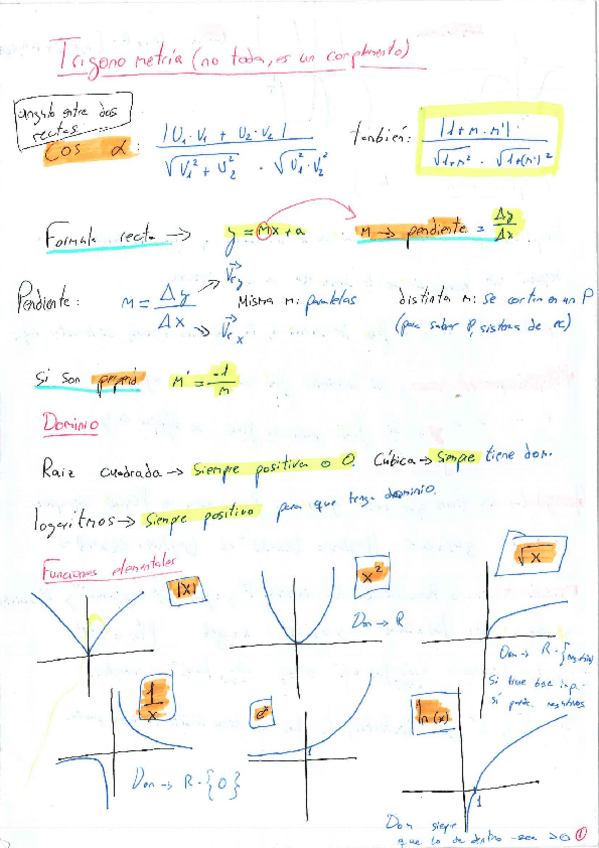 Trigonometría (no toda, es un complemento)
ángulo entre dos rectas
Cos α: |U₁·V₁ + U₂·V₂| / √U₁²+U₂² · √V₁²·V₂²
también: |1+m·m'| / √1+m² · √1+(m')²
Formula recta → y = mx+a m → pendiente = Δy/Δx
Pendiente: m = Δy/Δx → Vᵣy → Vᵣx Misma m: paralelas distinta m: se cortan en un P
(para saber P, sistema de ec)
Si son perpend m' = -1/m
Dominio
Raiz cuadrada → Siempre positiva o 0. Cúbica → Siempre tiene dom.
logaritmos → Siempre positivo para que tenga dominio.
Funciones elementales
|x|
x²
Dom → R
√x
Dom → R-{negativos}
Si tiene base imp.
si puede negativos
1/x
Dom → R-{0}
eˣ
1
ln(x)
1
Dom siempre
que lo de dentro sea >0
1